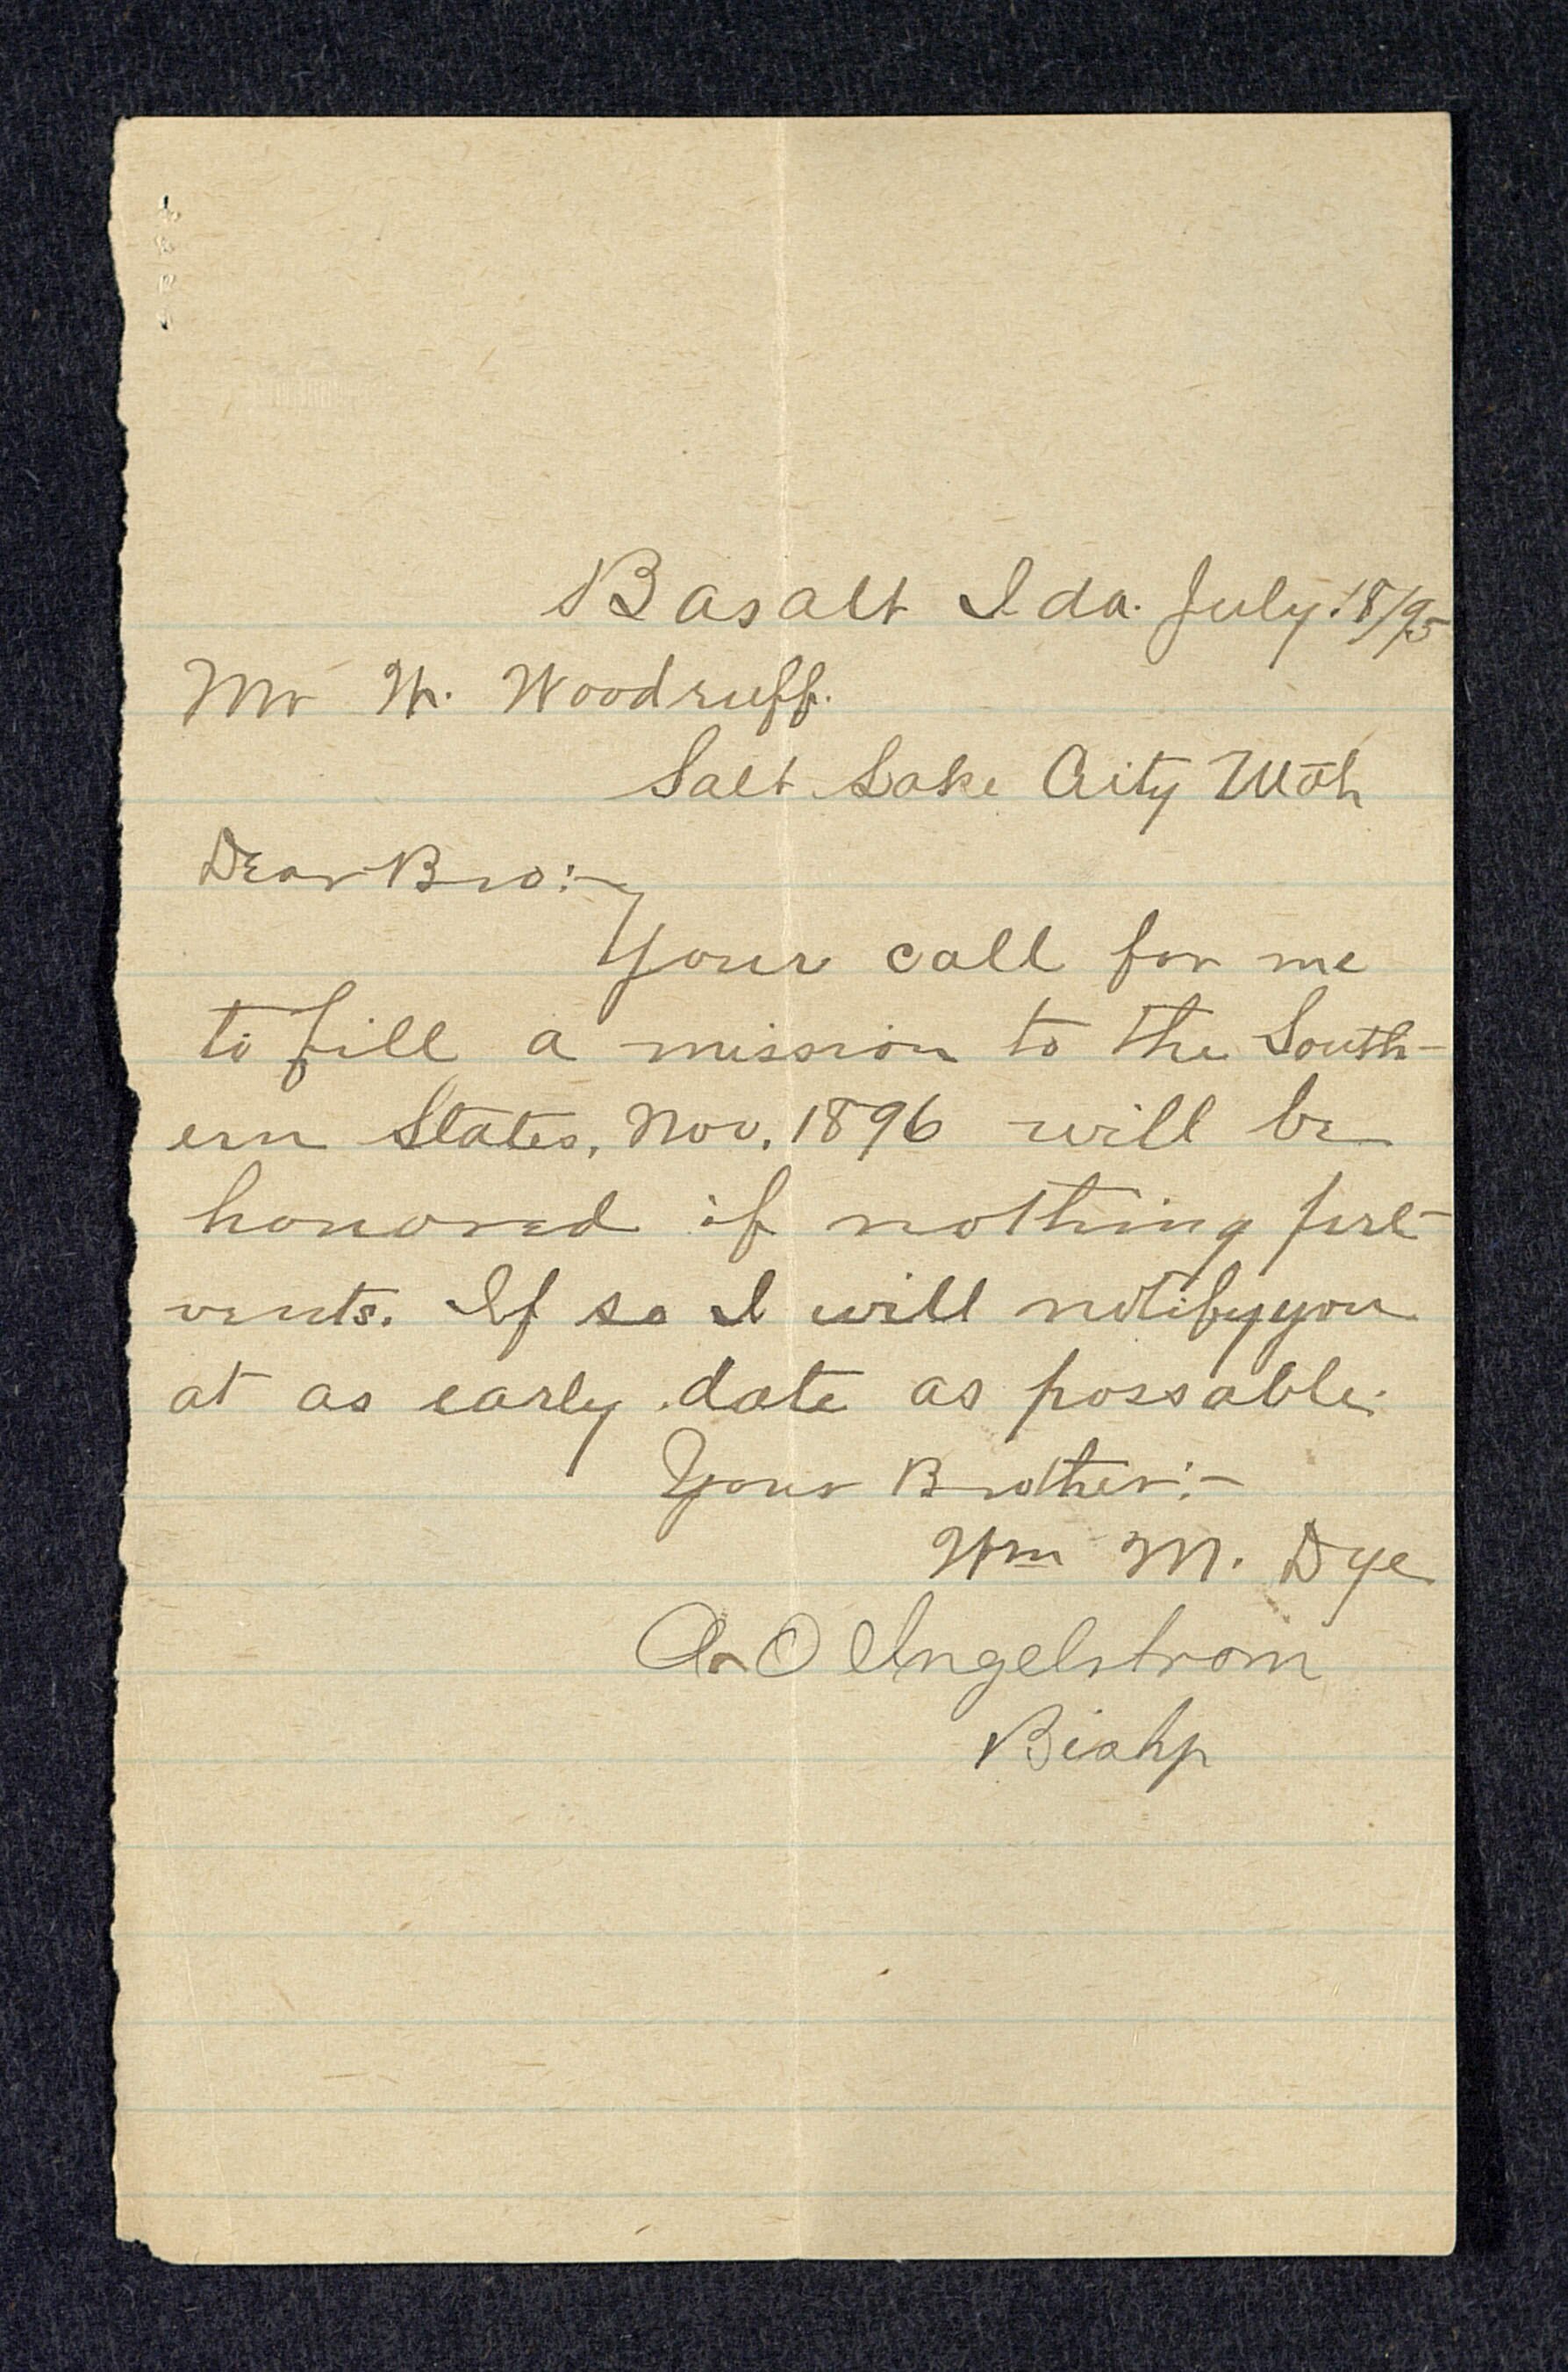 Basalt Ida. July. 18/95
Mr W. Woodruff.
Salt Lake City Utah
Dear Bro:-
Your call for me
to fill a mission to the South-
ern States, Nov. 1896 will be
honored if nothing pre-
vents. If so I will notify you
at as early date as possable.
Your Brother:-
Wm M. Dye
A. O Ingelstrom
Bishp